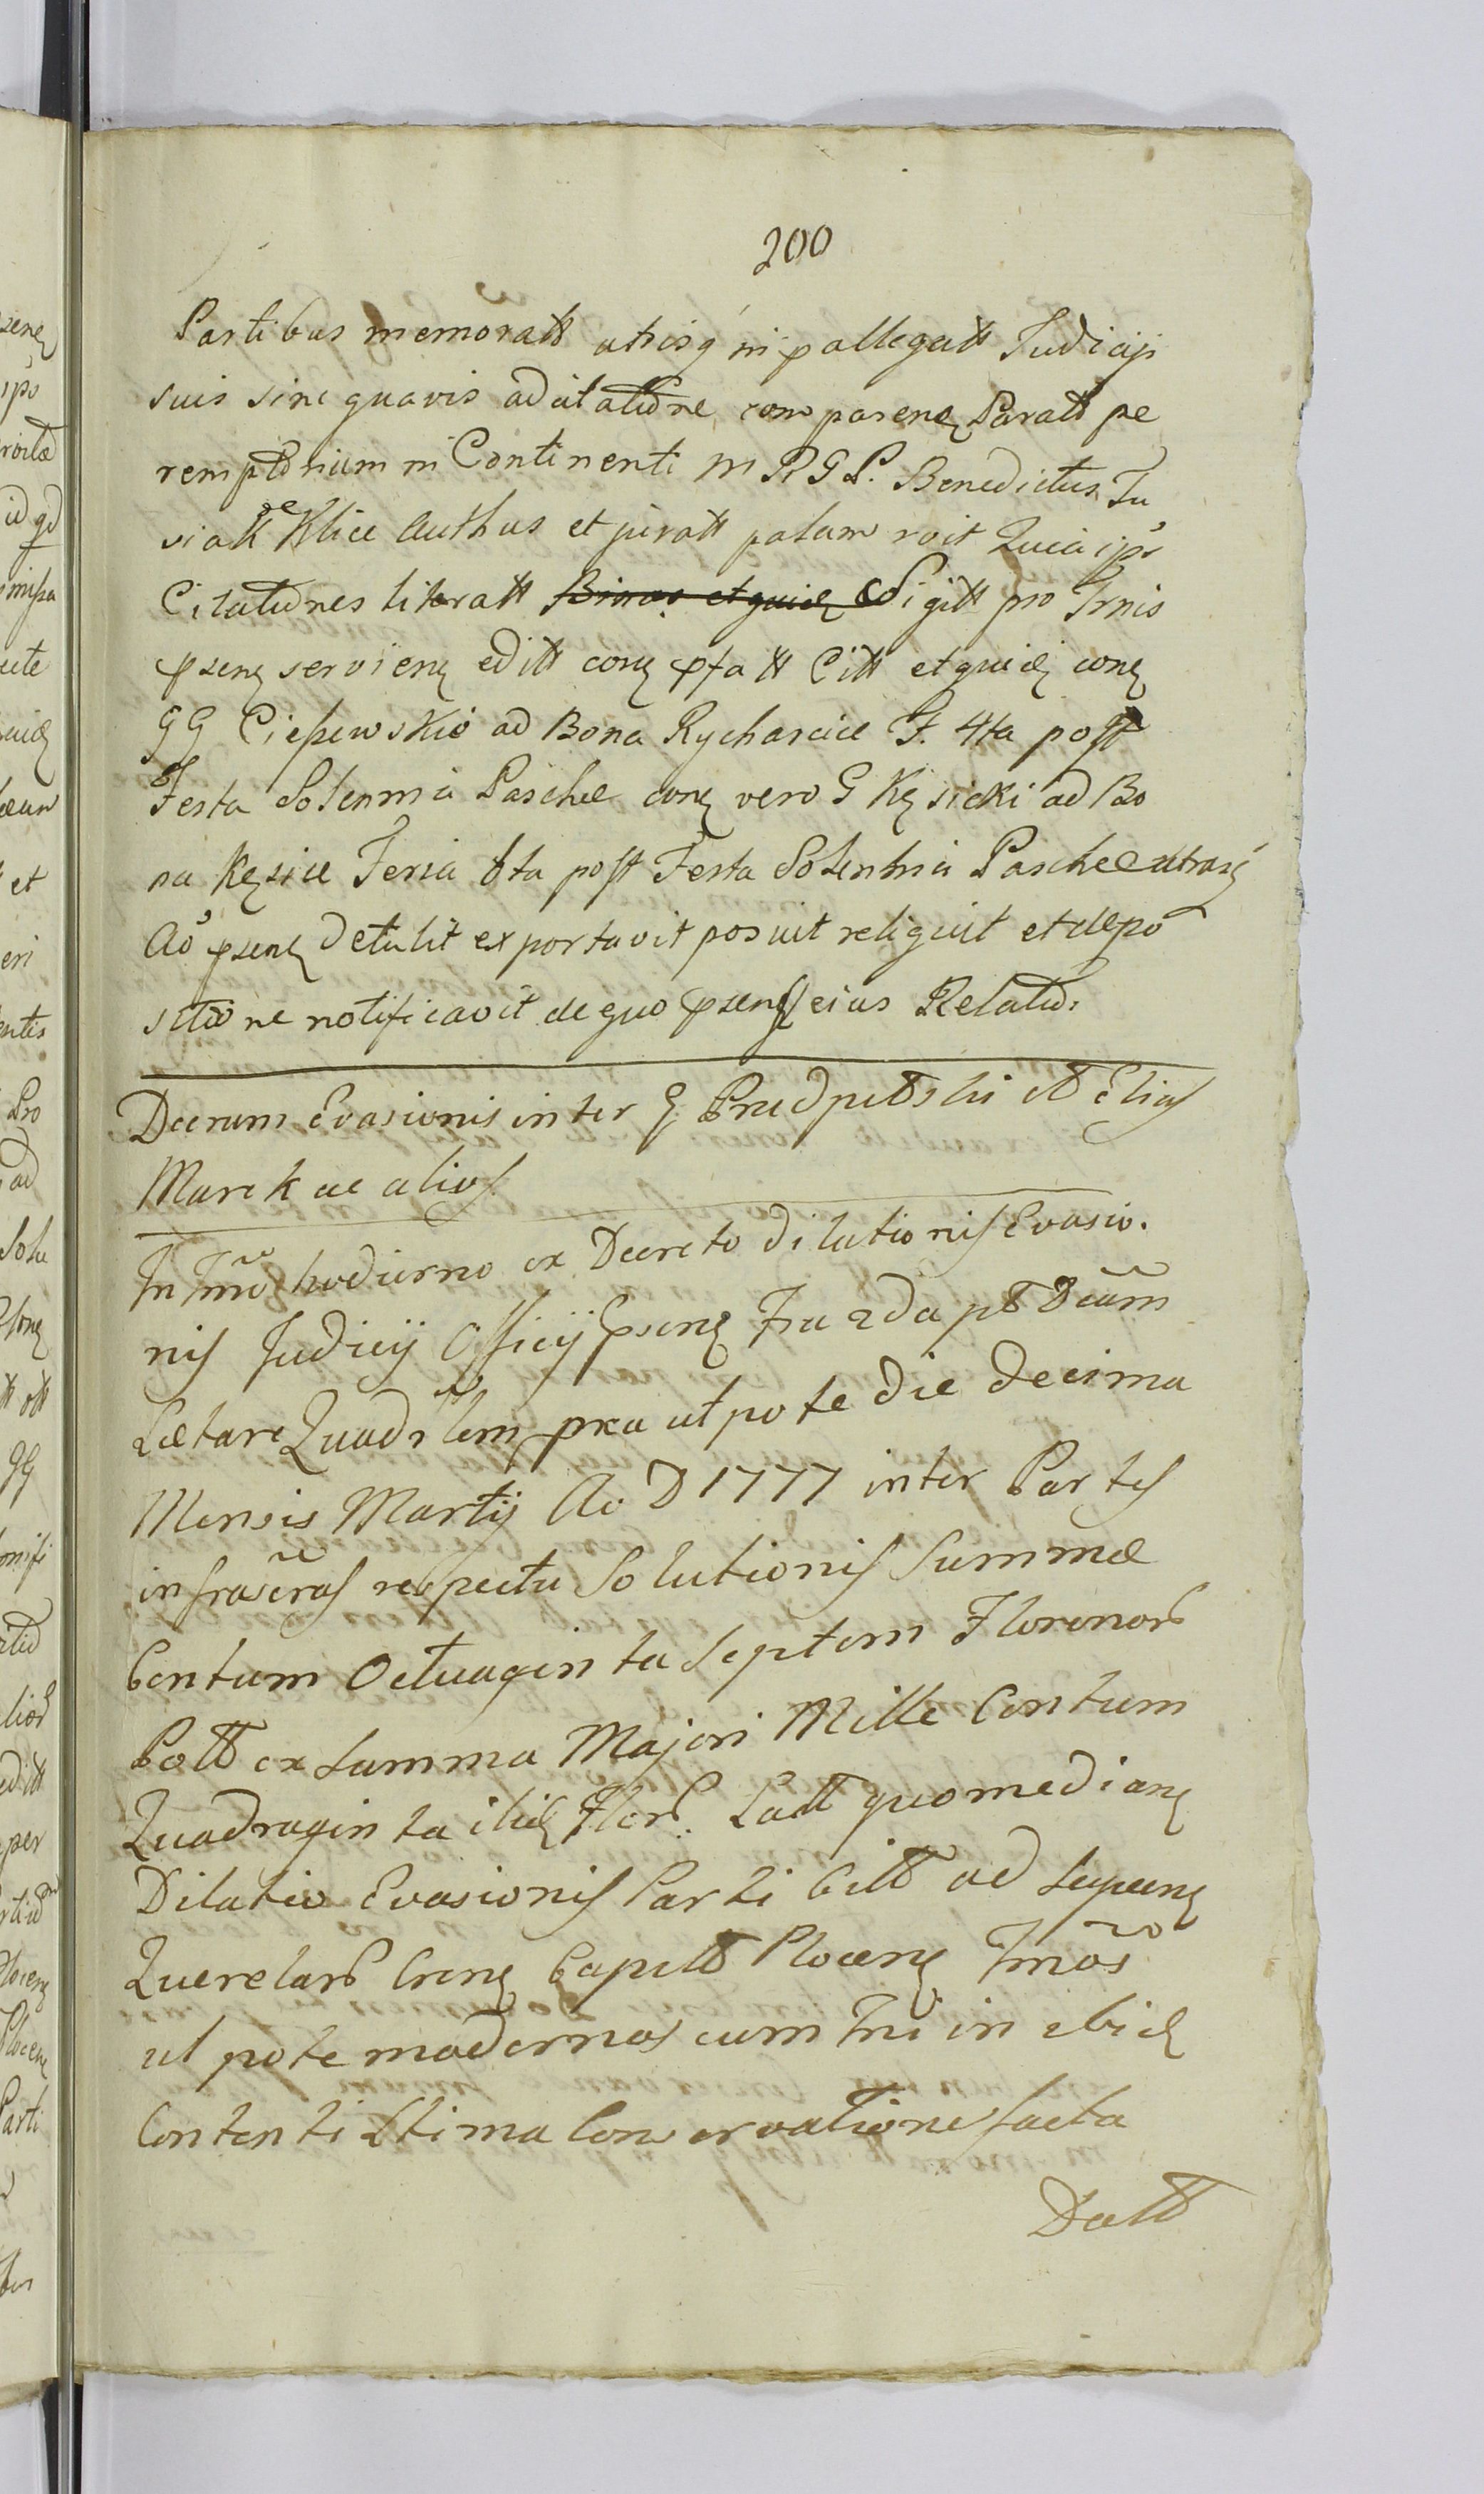 200
Partibus memoratt utrisq in pallegatt Judicij
suis sine quavis aditatione comparenę Paratt pe
remptorium in Continenti M R G P. Benedictus Tu
siak de Klice Authus et juratt palam roit Quia ipse
Citationes literatt Binas et quidę Sigitt pro Trnis
psenę servienę editt conę pfatt Citt et quidę conę
GG Ciepewskie ad Bona Rycharcice F. 4ta post
Festa Solennia Paschae conę vero G Kęsicki ad Bo
na Kęsice Feria 6ta post Festa Solennia Paschae utrasq
Ao psenę detulit exportavit posuit reliquit et depo
sitione notificavit de quo psenę eius Relatio.
Decrum Evasionis inter G et Elias
Marek ac alios
In Trno hodierno ex Decreto Dilationis Evasio.
nis Judicij Officij psenę Fra 2da pt Dcam
Laetare Quadrlem pxa utpote die decima
Mensis Martij Ao D 1777 inter Partes
infrascras respectu Solutionis Summae
Centum Octuaginta Septem Florenorb
Poltt ex Summa Majori Mille Centum
Quadraginta ibidę Flor. Poltt quo medianę
Dilatio Evasionis Parti Citt ad Supeenę
Querelarb Crenę Capitt Plocenę Trnos
utpote modernos cum Tri in ibidę
Contenti Ltima Conservatione facta
Datt